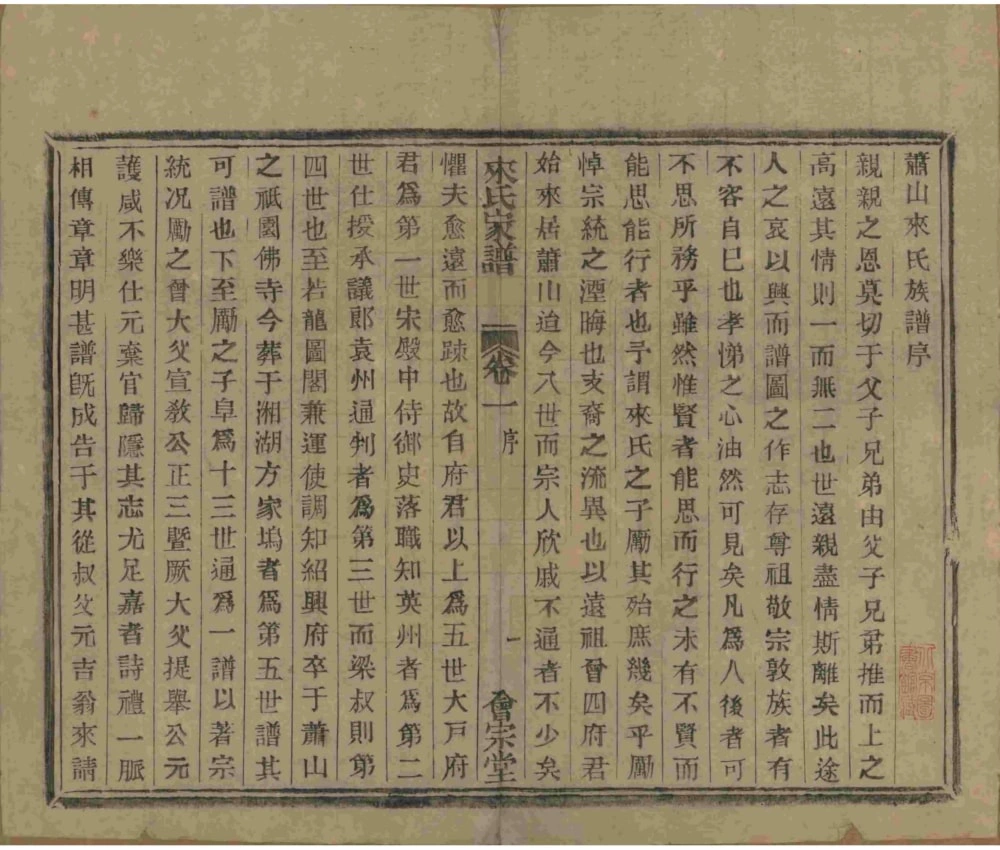 蕭山來氏族譜序
親親之恩莫切于父子兄弟由父子兄弟推而上之
高遠其情則一而無二也世遠親盡情斯離矣此途
人之哀以興而譜圖之作志存尊祖敬宗敦族者有
不容自巳也孝悌之心油然可見矣凡爲人後者可
不思所務乎雖然惟賢者能思而行之未有不賢而
能思能行者也予謂來氏之子勵其殆庶幾矣乎勵
悼宗統之湮晦也支裔之流異也以遠祖曾四府君
始來居蕭山迨今八世而宗人欣戚不通者不少矣
來氏家譜 卷一 序 一 會宗堂
懼夫愈遠而愈踈也故自府君以上爲五世大戸府
君爲第一世宋殿中侍御史落職知英州者爲第二
世仕授承議郎袁州通判者爲第三世而梁叔則第
四世也至若龍圖閣兼運使調知紹興府卒于蕭山
之祇園佛寺今葬于湘湖方家塢者爲第五世譜其
可譜也下至勵之子阜爲十三世通爲一譜以著宗
統况勵之曾大父宣敎公正三曁厥大父提舉公元
護咸不樂仕元棄官歸隱其志尤足嘉者詩禮一脈
相傳章章明甚譜旣成告于其從叔父元吉翁來請